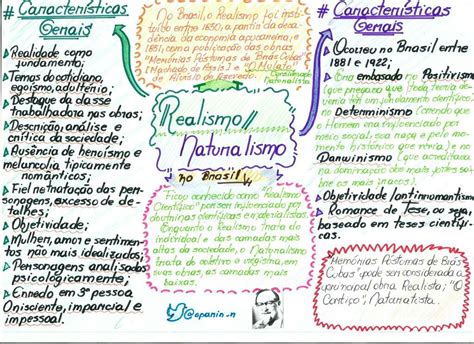 # Características
Gerais
Realidade como
fundamento;
Temas do cotidiano,
egoísmo, adultério,
Destaque da classe
trabalhadora nas obras;
Descrição, análise e
crítica da sociedade;
Ausência de heroísmo e
melancolia tipicamente
românticos;
Fiel retratação das per-
sonagens, excesso de de-
talhes;
Objetividade;
Mulher, amor e sentimen-
tos não mais idealizados;
Personagens analisados
psicologicamente;
Enredo em 3ª pessoa
Onisciente, imparcial e
impessoal.
No Brasil, o Realismo foi insti-
tuído entre 1850, a partir da deca-
dência da economia açucareira, e
1881, com a publicação das obras
"Memórias Póstumas de Brás Cubas"
(Machado de Assis) e "O Mulato"
Aluísio de Azevedo.
Considerado
naturalista
Realismo//
Naturalismo
no Brasil
Ficou conhecido como "Realismo
Científico" por ser influenciado por
doutrinas científicas e materialistas.
Enquanto o Realismo trata do
individual e das camadas mais
altas da sociedade, o Naturalismo
trata do coletivo e registra, em
suas obras, as camadas mais
baixas.
@apanin.n
# Características
Gerais
Ocorreu no Brasil entre
1881 e 1922;
Era embasado no Positivismo
(que pregava que toda teoria de-
veria ter um fundamento científico),
no Determinismo (dizendo que
o Homem era influenciado por
meio social, sua raça e pelo mo-
mento histórico que vivia), e no
Darwinismo (que acreditava
na dominação dos mais fortes so-
bre os mais fracos).
Objetividade (antirromantismo)
Romance de Tese, ou seja,
baseado em teses científi-
cas.
Memórias Póstumas de Brás
Cubas" pode ser considerada a
principal obra Realista; "O
Cortiço", Naturalista.